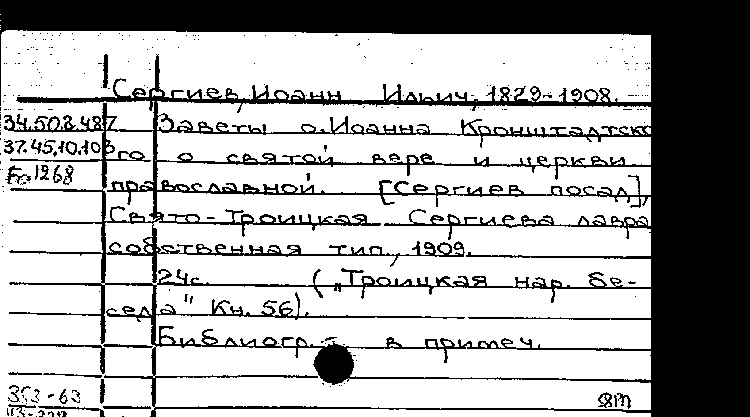 Сергиев, Иоанн Ильич, 1829-1908.
34.508.487 Заветы о. Иоанна Кронштадтско
37.45.10.103 го о святой вере и церкви
1268 православной. [Сергиев посад],
Свято-Троицкая Сергиева лавра
собственная тип., 1909.
24с. („Троицкая нар. бе-
седа" Кн. 56).
Библиогр. - в примеч.
353-63